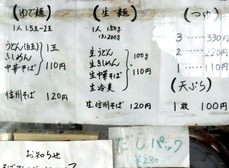 (ゆで麺)
1人 1.5玉~2玉
うどん(1玉) 1玉
きしめん
中華そば 110円
信州そば 120円
(生麺)
1人 130g
生うどん 100g
生きしめん
生中華そば 110円
生冷麦
生信州そば 120円
(つけ
3 ‥‥ 330円
2 ‥‥ 220円
1 ‥‥ 110円
(天ぷら)
1枚 100円
お知らせ
だしパック
¥280